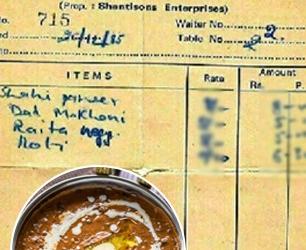 (Prop.: Shantisons Enterprises)
No. 715 Waiter No.
26/12/85 Table No. 2
ITEMS Rate Amount
Rs. P.
Shahi paneer
Dal Makhani
Raita
Roti